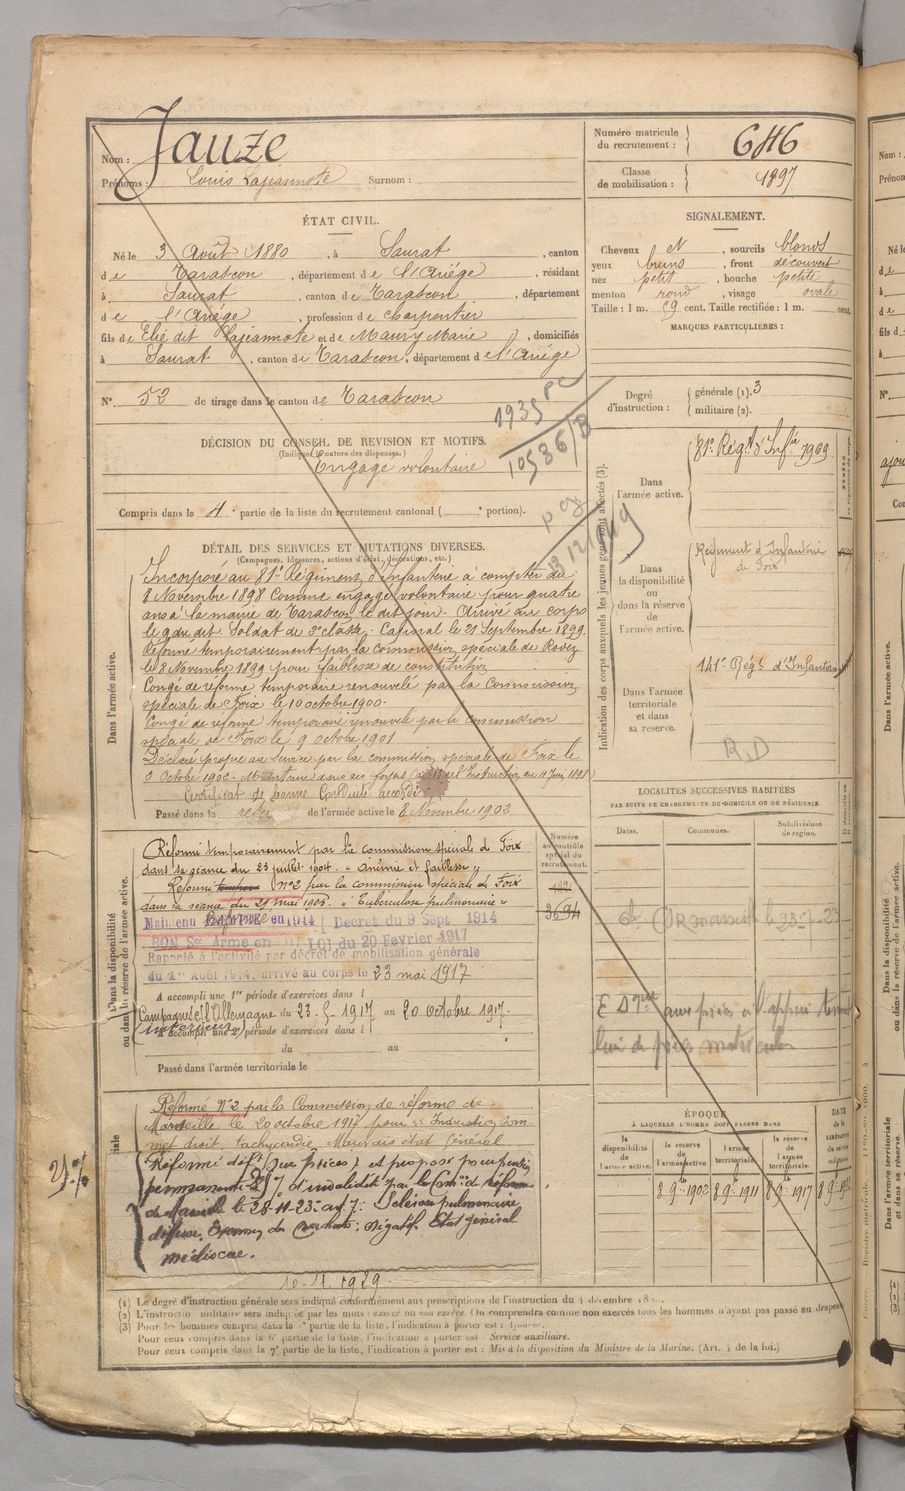 Nom : Jauze
Prénoms : Louis Lajeannote Surnom :
Numéro matricule du recrutement : 646
Classe de mobilisation : 1897
ÉTAT CIVIL.
Né le 3 Août 1880, à Saurat, canton
de Tarascon, département de l'Ariége, résidant
à Saurat, canton de Tarascon, département
de l'Ariége, profession de charpentier
fils de Elie dit Lajeannote et de Maury Marie, domiciliés
à Saurat, canton de Tarascon, département de l'Ariége
N° 52 de tirage dans le canton de Tarascon
1935
10586/B
DÉCISION DU CONSEIL DE REVISION ET MOTIFS.
(Indiquer la nature des dispenses.)
Engagé volontaire
Compris dans la 4e partie de la liste du recrutement cantonal ( e portion).
SIGNALEMENT.
Cheveux N, sourcils blonds
yeux bruns, front découvert
nez petit, bouche petite
menton rond, visage ovale
Taille : 1 m. 69 cent. Taille rectifiée : 1 m. cent.
MARQUES PARTICULIÈRES :
Degré d'instruction : générale (1). 3
militaire (2).
Indication des corps auxquels les jeunes gens sont affectés (3).
Dans l'armée active. 81e Régt d'Infie 7969
Dans la disponibilité ou dans la réserve de l'armée active. Régiment d'Infanterie de Foix
Dans l'armée territoriale et dans sa réserve. 141e Régt d'Infanterie
R.D
DÉTAIL DES SERVICES ET MUTATIONS DIVERSES.
(Campagnes, blessures, actions d'éclat, décorations, etc.)
Dans l'armée active.
Incorporé au 81e Régiment d'infanterie à compter du
8 Novembre 1898 Comme engagé volontaire pour quatre
ans à la mairie de Tarascon le dit jour. Arrivé au corps
le 9 du dit. Soldat de 2e classe. Caporal le 21 Septembre 1899.
Réformé temporairement par la commission spéciale de Rodez
le 8 Novembre 1899 pour faiblesse de constitution
Congé de réforme temporaire renouvelé par la Commission
spéciale de Foix le 10 octobre 1900.
Congé de réforme temporaire renouvelé par la commission
spéciale de Foix le 9 octobre 1901
Déclaré propre au service par la commission spéciale de Foix le
Octobre 1902. Maintenu dans ses foyers
Certificat de bonne Conduite accordé
Passé dans la réserve de l'armée active le 8 Novembre 1902
Dans la disponibilité ou dans la réserve de l'armée active.
Réformé temporairement par la commission spéciale de Foix
dans sa séance du 23 juillet 1904. "Anémie et faiblesse"
Réformé n°2 par la commission spéciale de Foix
dans sa séance du 29 mai 1905. "Tuberculose pulmonaire"
Maintenu en 1914 Decret du 9 Sept 1914
BON Sce Armé en LOI du 20 Fevrier 1917
Rappelé à l'activité par décret de mobilisation générale
du 1er Août 1914, arrivé au corps le 23 mai 1917
A accompli une 1re période d'exercices dans l
Campagne c/ l'Allemagne du 23-5-1917 au 20 octobre 1917.
(intérieur)
A accompli une 2e période d'exercices dans l
du au
Passé dans l'armée territoriale le
Numéro au contrôle spécial du recrutement.
3694
LOCALITÉS SUCCESSIVES HABITÉES
PAR SUITE DE CHANGEMENTS DE DOMICILE OU DE RÉSIDENCE.
Dates. Communes. Subdivisions de région.
Réformé N°2 par la Commission de réforme de
Marseille le 20 octobre 1917 pour "Induration sommet droit, tachycardie, Mauvais état général
Réformé déft (sur pièces) et proposé pr pension
permanente d'invalidité par la Com. de réforme
de Marseille le 28-11-23: Sclérose pulmonaire
diffuse. Examen des crachats: négatif. Etat général
médiocre.
10.4.1929.
ÉPOQUE
À LAQUELLE L'HOMME DOIT PASSER DANS
la disponibilité de l'armée active. la réserve de l'armée active. l'armée territoriale. la réserve de l'armée territoriale. DATE de la LIBÉRATION du service militaire
8 9bre 1902 8 9bre 1911 8 9bre 1917
(1) Le degré d'instruction générale sera indiqué conformément aux prescriptions de l'instruction du 4 décembre 18
(2) L'instruction militaire sera indiquée par les mots : exercé ou non exercé. On comprendra comme non exercés tous les hommes n'ayant pas passé au drapeau
(3) Pour les hommes compris dans la e partie de la liste, l'indication à porter est : Ajourné.
Pour ceux compris dans la 6e partie de la liste, l'indication à porter est : Service auxiliaire.
Pour ceux compris dans la 7e partie de la liste, l'indication à porter est : Mis à la disposition du Ministre de la Marine. (Art. 4 de la loi.)